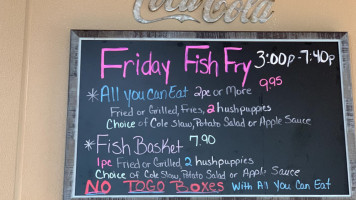 Coca-Cola
Friday Fish Fry 3:00p - 7:40p
*All you can Eat 2pc or More 9.95
Fried or Grilled, Fries, 2 hushpuppies
Choice of Cole Slaw, Potato Salad or Apple Sauce
*Fish Basket 7.90
1pc Fried or Grilled, 2 hushpuppies
Choice of Cole Slaw, Potato Salad or Apple Sauce
NO TOGO Boxes With All You Can Eat